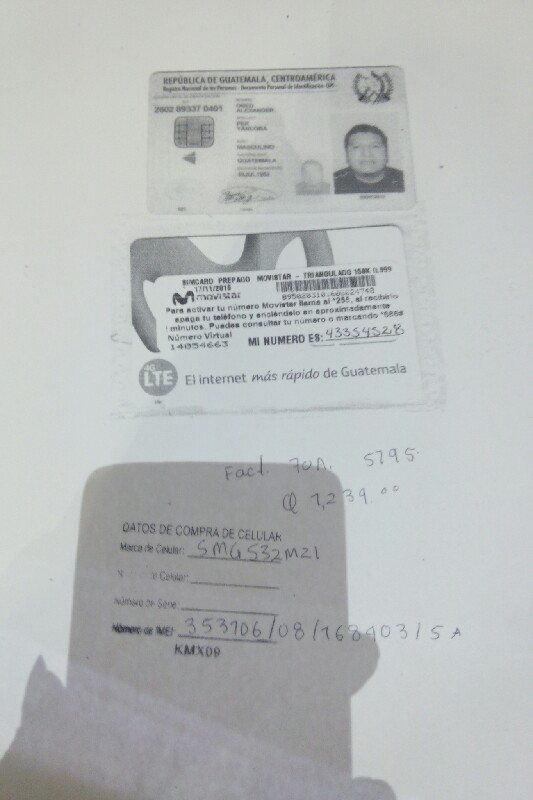 REPÚBLICA DE GUATEMALA, CENTROAMÉRICA
Registro Nacional de las Personas - Documento Personal de Identificación DPI
2602 89337 0401
ALEXANDER
MASCULINO
GUATEMALA
SIMCARD PREPAGO MOVISTAR - TRIANGULADO 158K 0,999
17/11/2016
movistar
Para activar tu número Movistar llama al *255, al recibirlo
apaga tu teléfono y enciéndelo en aproximadamente
minutos. Puedes consultar tu número o marcando *688#
Número Virtual
14054663
MI NUMERO ES: 43354528
4G
LTE
El internet más rápido de Guatemala
Fact. 70A. 5795
Q 1,239.00
DATOS DE COMPRA DE CELULAR
Marca de Celular: SMG532M21
Celular:
Número de Serie:
Número de IMEI 353106/08/168403/5 A
KMX09